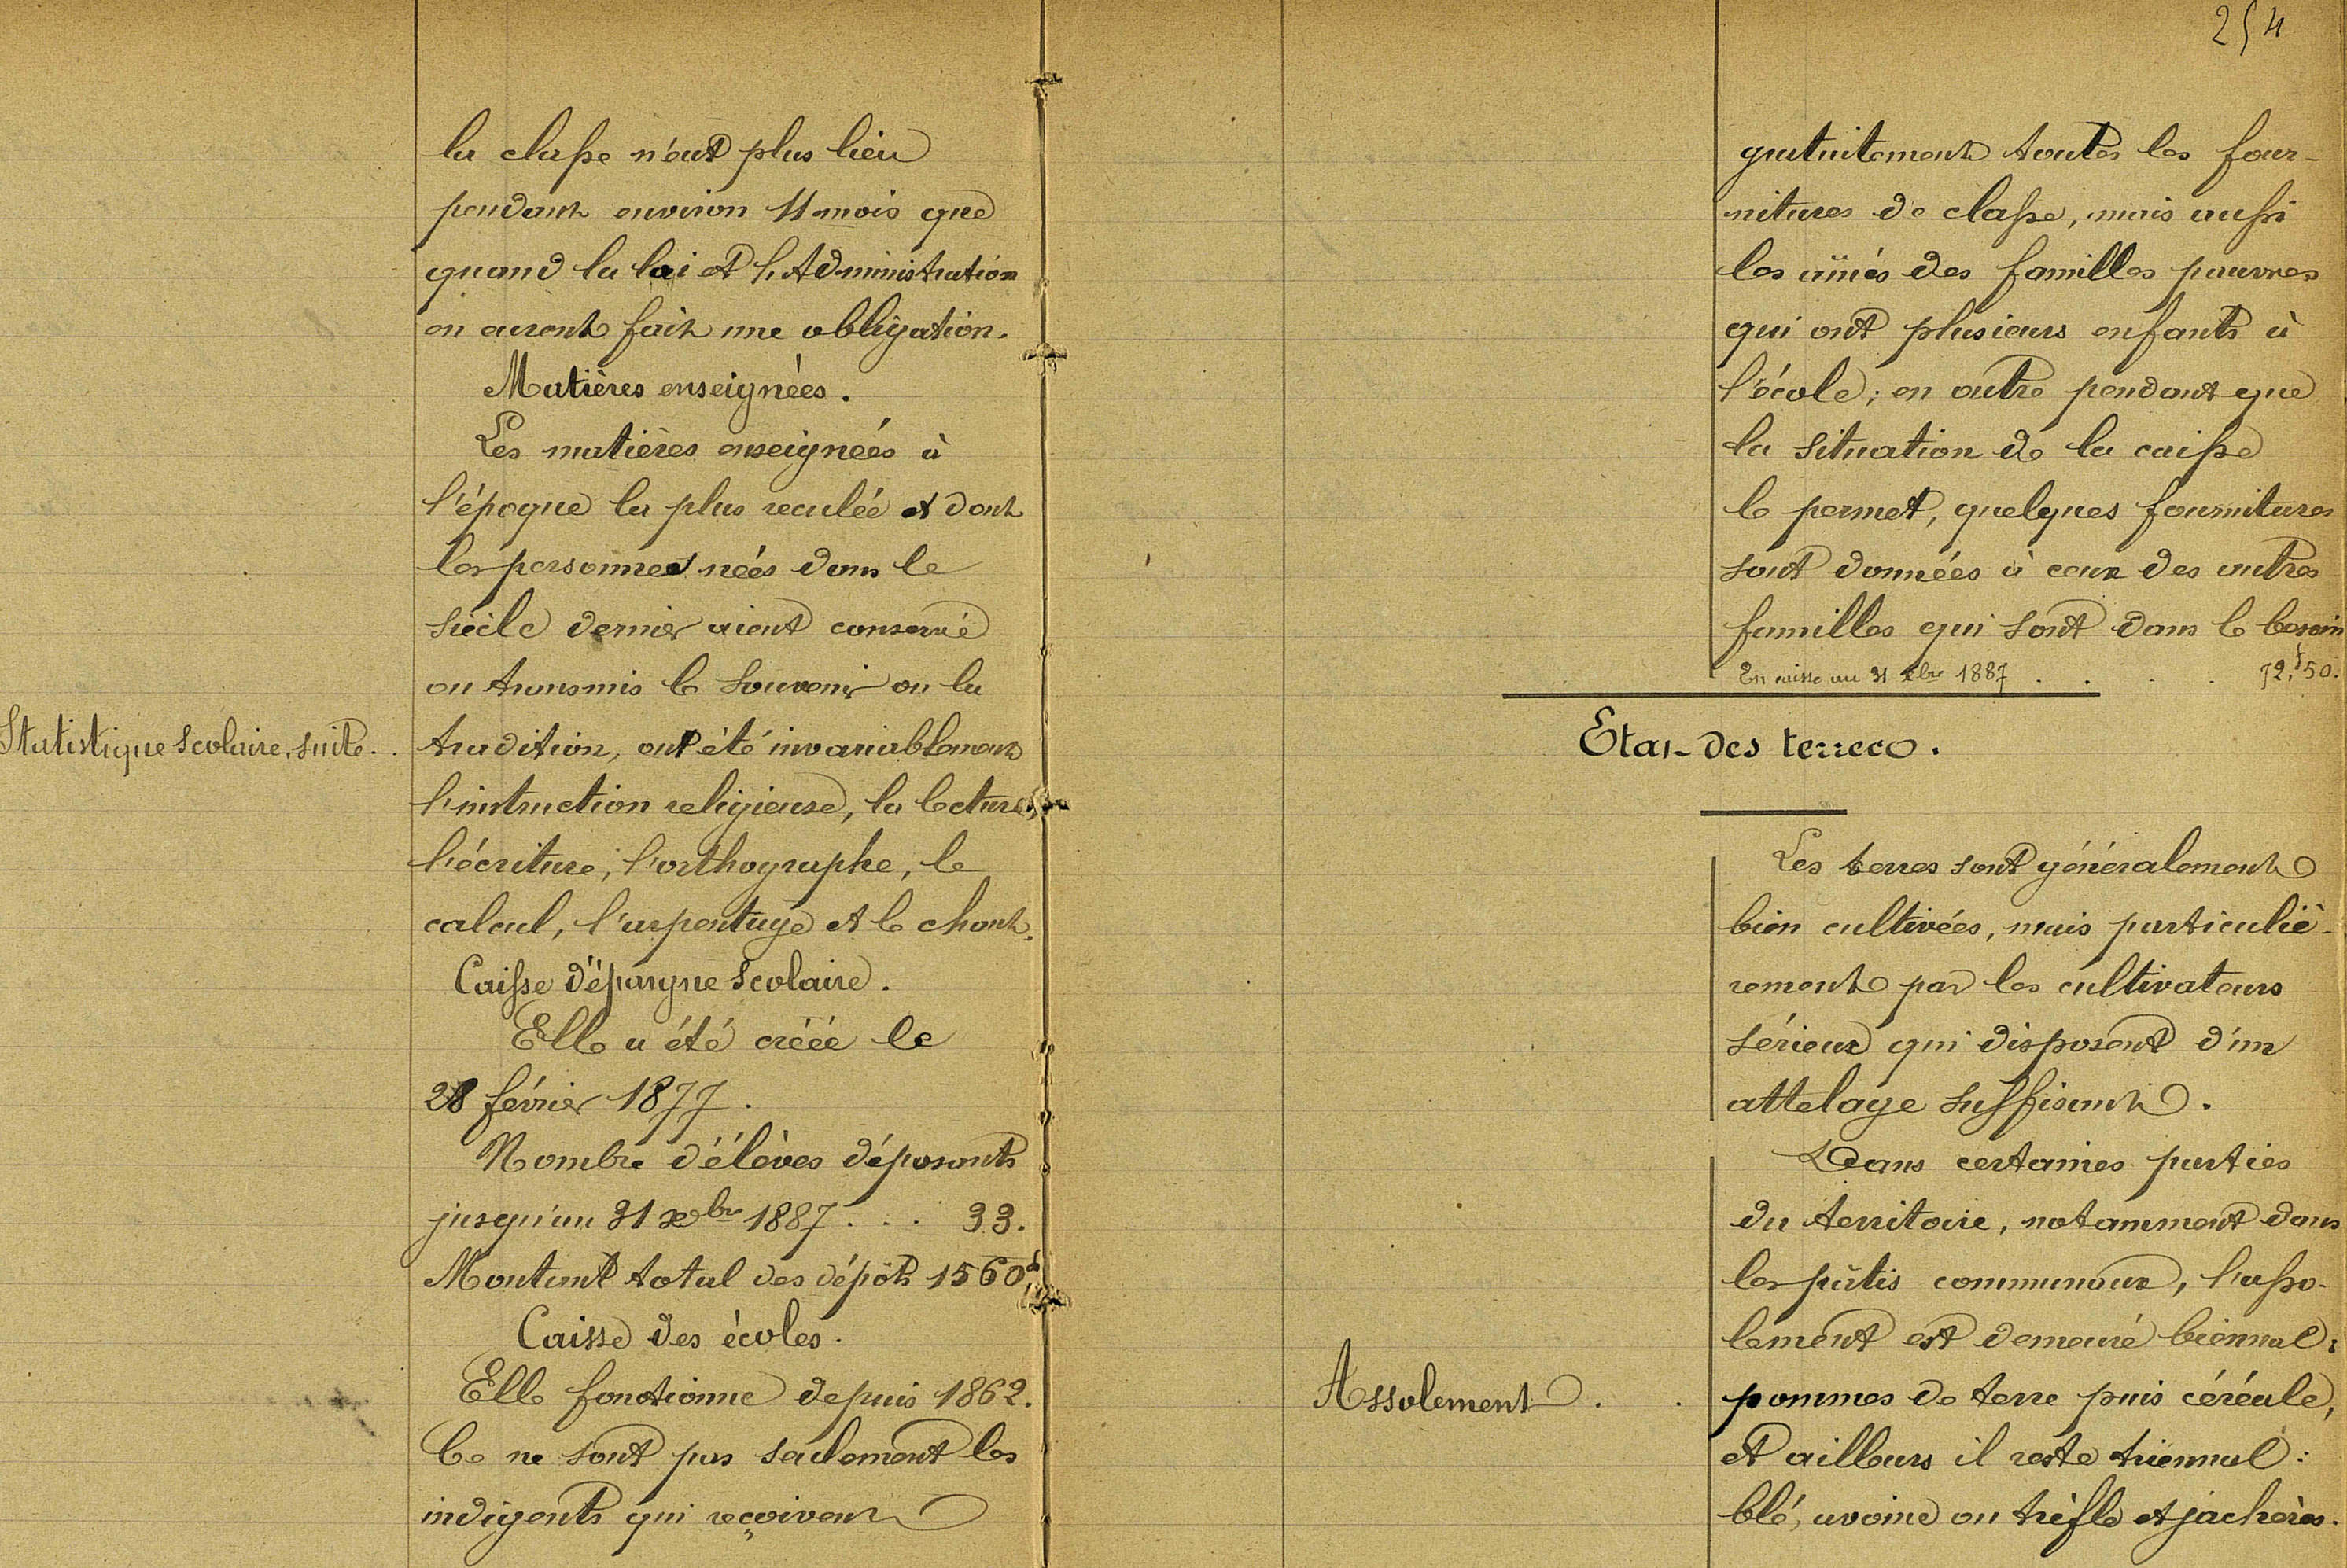 la classe n'eut plus lieu
pendant environ 11 mois que
quand la loi et l'Administration
en auront fait une obligation.
Matières enseignées.
Les matières enseignées à
l'époque la plus reculée et dont
les personnes nées dans le
siècle dernier aient conservé
ou transmis le souvenir ou la
Statistique scolaire, suite. .
tradition, ont été invariablement
l'instruction religieuse, la lecture,
l'écriture, l'orthographe, le
calcul, l'arpentage et le chant.
Caisse d'épargne scolaire.
Elle a été créée le
28 février 1877.
Nombre d'élèves déposants
jusqu'au 31 xbre 1887 . . . 33.
Montant total des dépôts 1560f
Caisse des écoles.
Elle fonctionne depuis 1862.
Ce ne sont pas seulement les
indigents qui reçoivent
254
gratuitement toutes les four-
nitures de classe, mais aussi
les aînés des familles pauvres
qui ont plusieurs enfants à
l'école; en outre pendant que
la situation de la caisse
le permet, quelques fournitures
sont données à ceux des autres
familles qui sont dans le besoin
En caisse au 31 xbre 1887 . . . . 72,f50.
Etat des terres.
Les terres sont généralement
bien cultivées, mais particuliè-
rement par les cultivateurs
sérieux qui disposent d'un
attelage suffisant.
Dans certaines parties
du territoire, notamment dans
les pâtis communaux, l'asso-
lement est demeuré biennal:
Assolement . .
pommes de terre puis céréale,
et ailleurs il reste triennal:
blé, avoine ou trèfle et jachères.